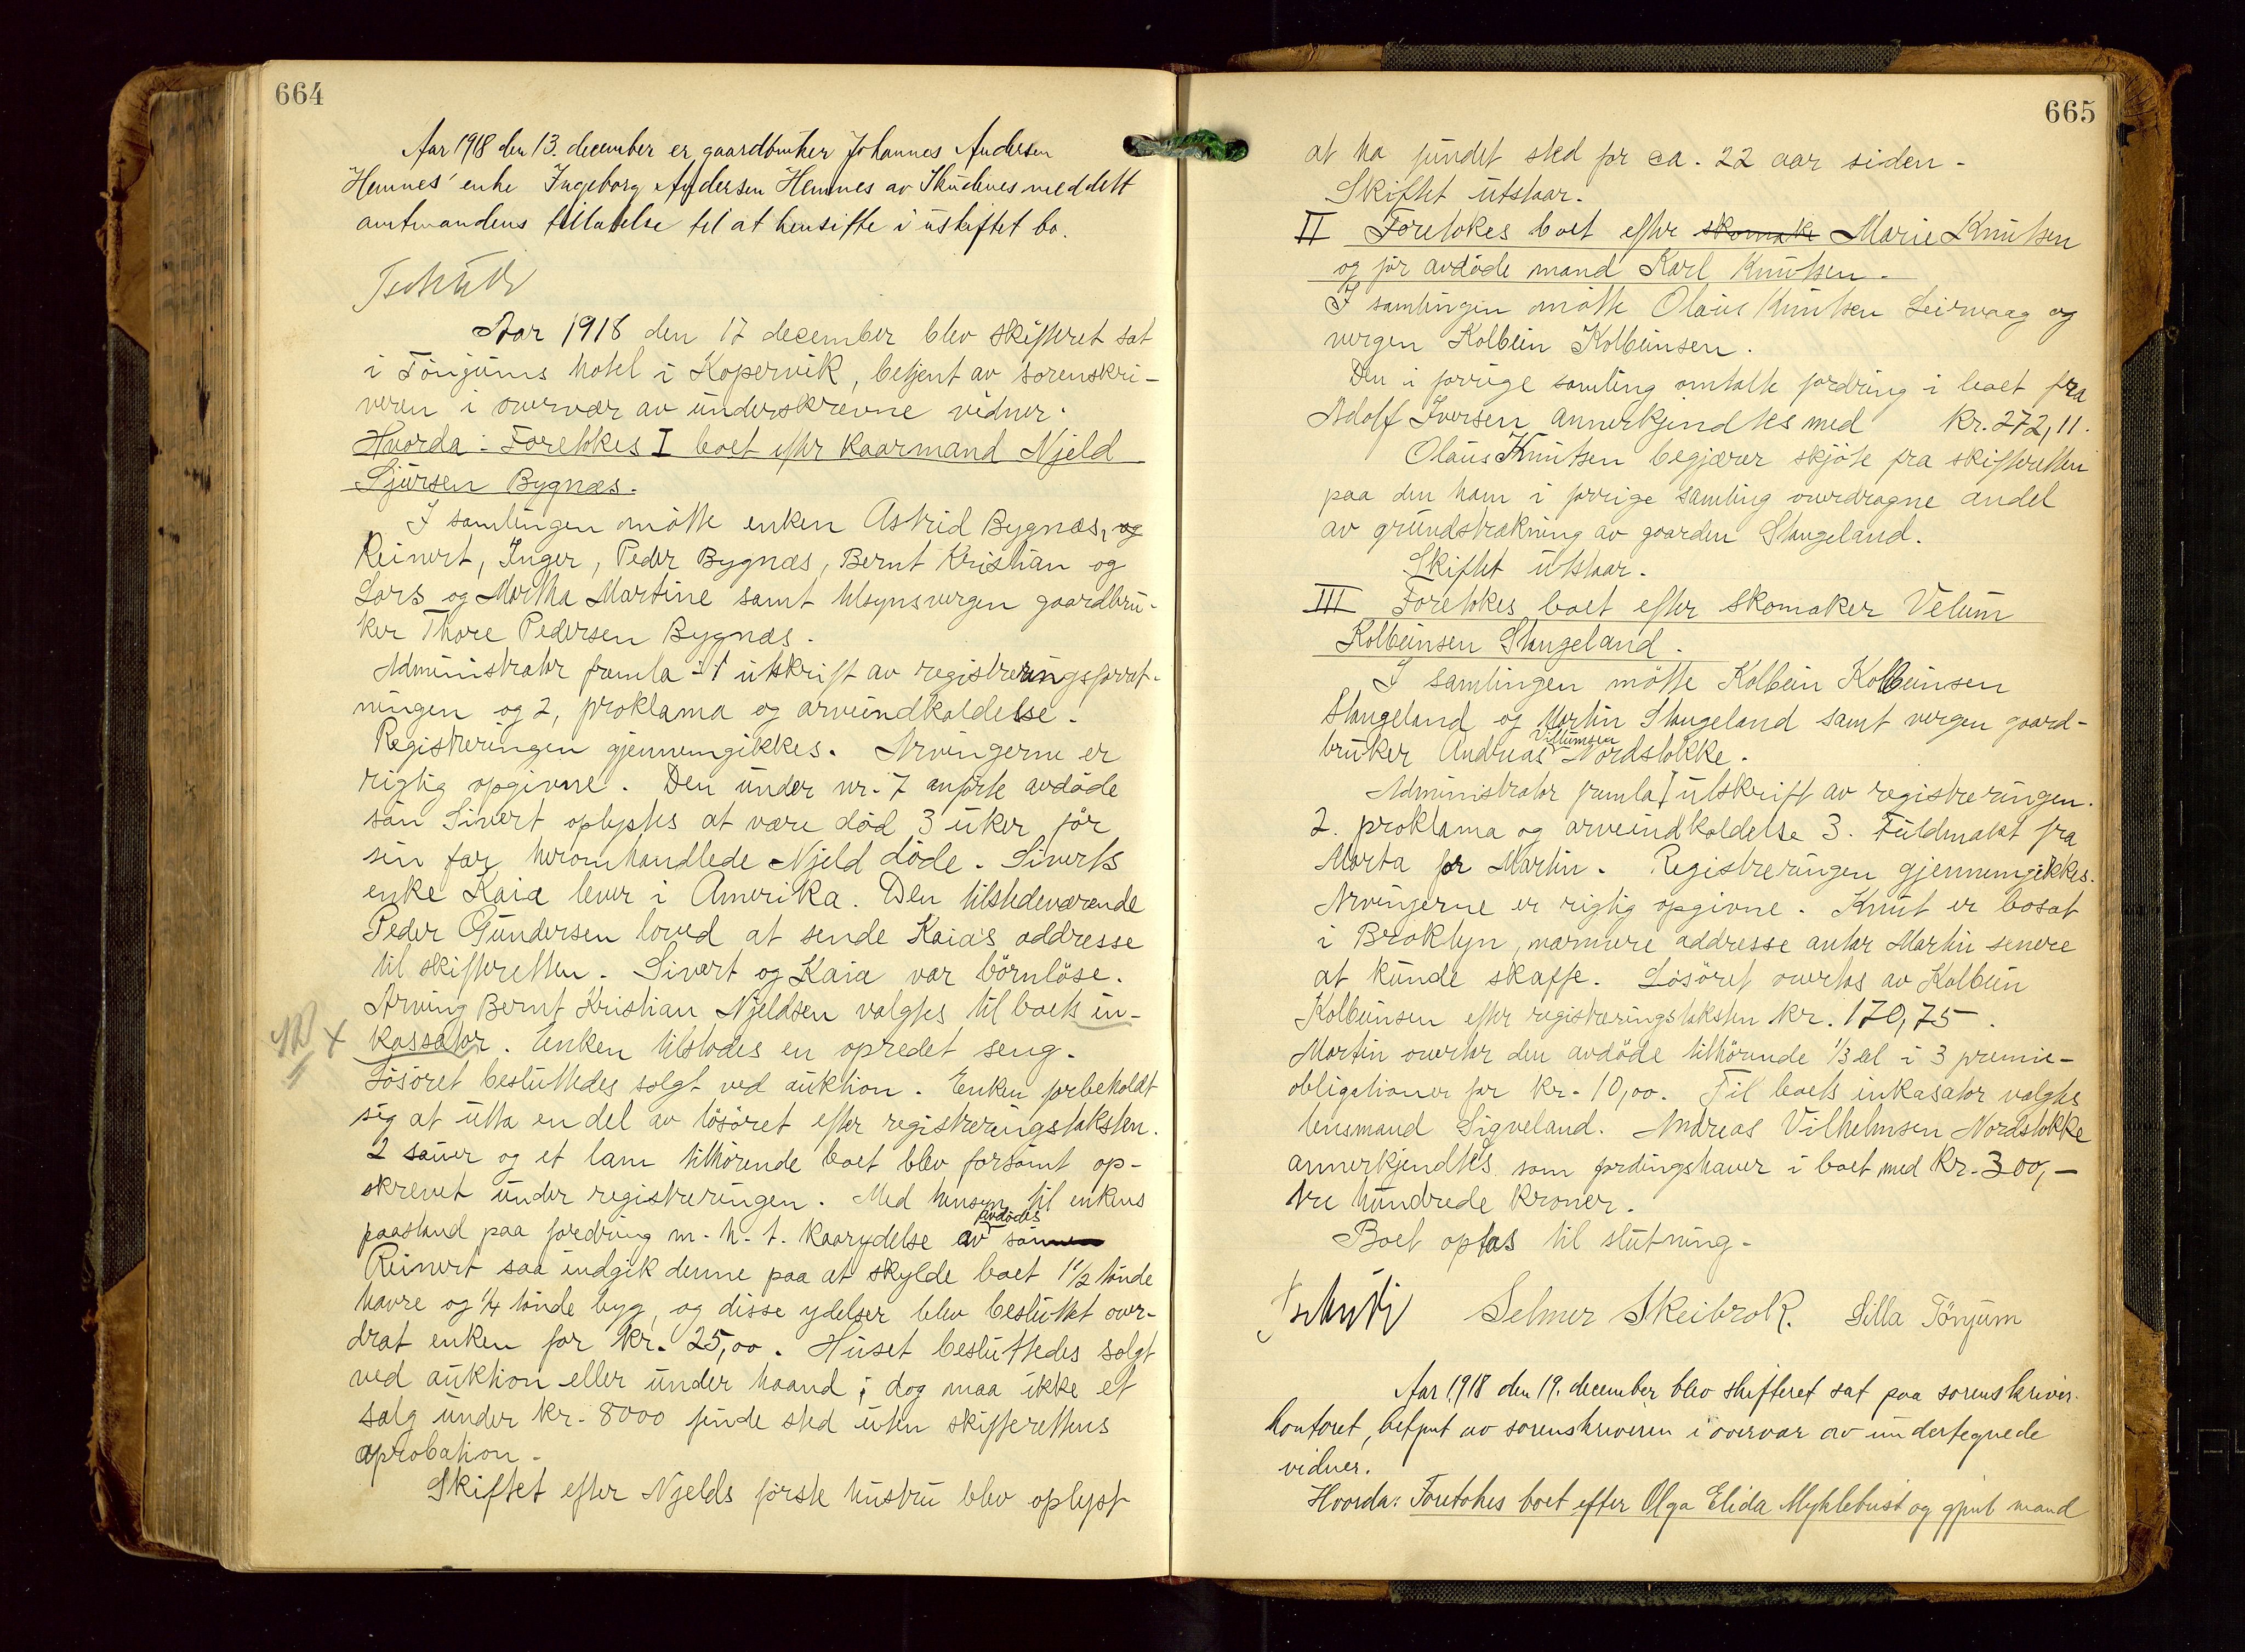 664
Aar 1918 den 13. december er gaardbruker Johannes Andersen
Hemnes' enke Ingeborg Andersen Hemnes av Skudenes meddelt
amtmandens tilladelse til at hensitte i uskiftet bo.
Aar 1918 den 17 december blev skifteret sat
i Tönjums hotel i Kopervik, betjent av sorenskri-
veren i overvær av underskrevne vidner.
Hvorda: Foretokes I boet efter kaarmand Njeld
Sjursen Bygnæs.
I samlingen mötte enken Astrid Bygnæs, og
Reinert, Inger, Peder Bygnæs, Bernt Kristian og
Lars og Martha Martine samt tilsynsvergen gaardbru-
ker Thore Pedersen Bygnæs.
Administrator framla 1 utskrift av registreringsforret-
ningen og 2, proklama og arveindkaldelse.
Registreringen gjennemgikkes. Arvingerne er
rigtig opgivne. Den under nr. 7 anförte avdöde
sön Sivert oplystes at være död 3 uker för
sin far heromhandlede Njeld döde. Siverts
enke Kaia lever i Amerika. Den tilstedeværende
Peder Gundersen loved at sende Kaia's addresse
til skifteretten. Sivert og Kaia var börnlöse.
Arving Bernt Kristian Njeldsen valgtes til boets in-
kassator. Enken tilstodes en opredet seng.
Lösöret besluttedes solgt ved auktion. Enken forbeholdt
sig at utta en del av lösöret efter registreringstaksten.
2 sauer og et lam tilhörende boet blev forsömt op-
skrevet under registreringen. Med hensyn til enkens
paastand paa fordring m. h. t. kaarydelse av avdödes sönnen
Reinert saa indgik denne paa at skylde boet 1 1/2 tönde
havre og 1/4 tönde byg, og disse ydelser blev besluttet over-
drat enken for kr. 25,00. Huset besluttedes solgt
ved auktion eller under haand; dog maa ikke et
salg under kr. 8000 finde sted uten skifterettens
aprobation.
Skiftet efter Njelds förste hustru blev oplyst
665
at ha fundet sted for ca. 22 aar siden.
Skiftet utstaar.
II Foretokes boet efter skomake Marie Knutsen
og för avdöde mand Karl Knutsen.
I samlingen mötte Olaus Knutsen Leirvaag og
vergen Kolbein Kolbeinsen.
Den i forrige samling omtalte fordring i boet fra
Adolf Iversen annerkjendtes med kr. 272,11.
Olaus Knutsen begjærer skjöte fra skifteretten
paa den ham i forrige samling overdragne andel
av grundstrækning av gaarden Stangeland.
Skiftet utstaar.
III Foretokes boet efter skomaker Velum
Kolbeinsen Stangeland.
I samlingen mötte Kolbein Kolbeinsen
Stangeland og Martin Stangeland samt vergen gaard-
bruker Andreas Villumsen Nordstokke.
Administrator framla 1 utskrift av registreringen.
2. proklama og arveindkaldelse 3. Fuldmakt fra
Marta for Martin. Registreringen gjennemgikkes.
Arvingerne er rigtig opgivne. Knut er bosat
i Broklyn, nærmere addresse antar Martin senere
at kunde skaffe. Lösöret overtas av Kolbein
Kolbeinsen efter registreringstaksten kr. 170,75.
Martin overtar den avdöde tilhörende 1/3 del i 3 premie-
obligationer for kr. 10,00. Til boets inkasator valgtes
lensmand Sigveland. Andreas Vilhelmsen Nordstokke
annerkjendtes som fordingshaver i boet med kr. 300,-
tre hundrede kroner.
Boet optas til slutning.
Selmer Skeibrok. Silla Tönjum
Aar 1918 den 19. december blev skifteret sat paa sorenskriver-
kontoret, betjent av sorenskriveren i overvær av undertegnede
vidner.
Hvorda: Foretokes boet efter Olga Elida Myklebust og gjenl. mand